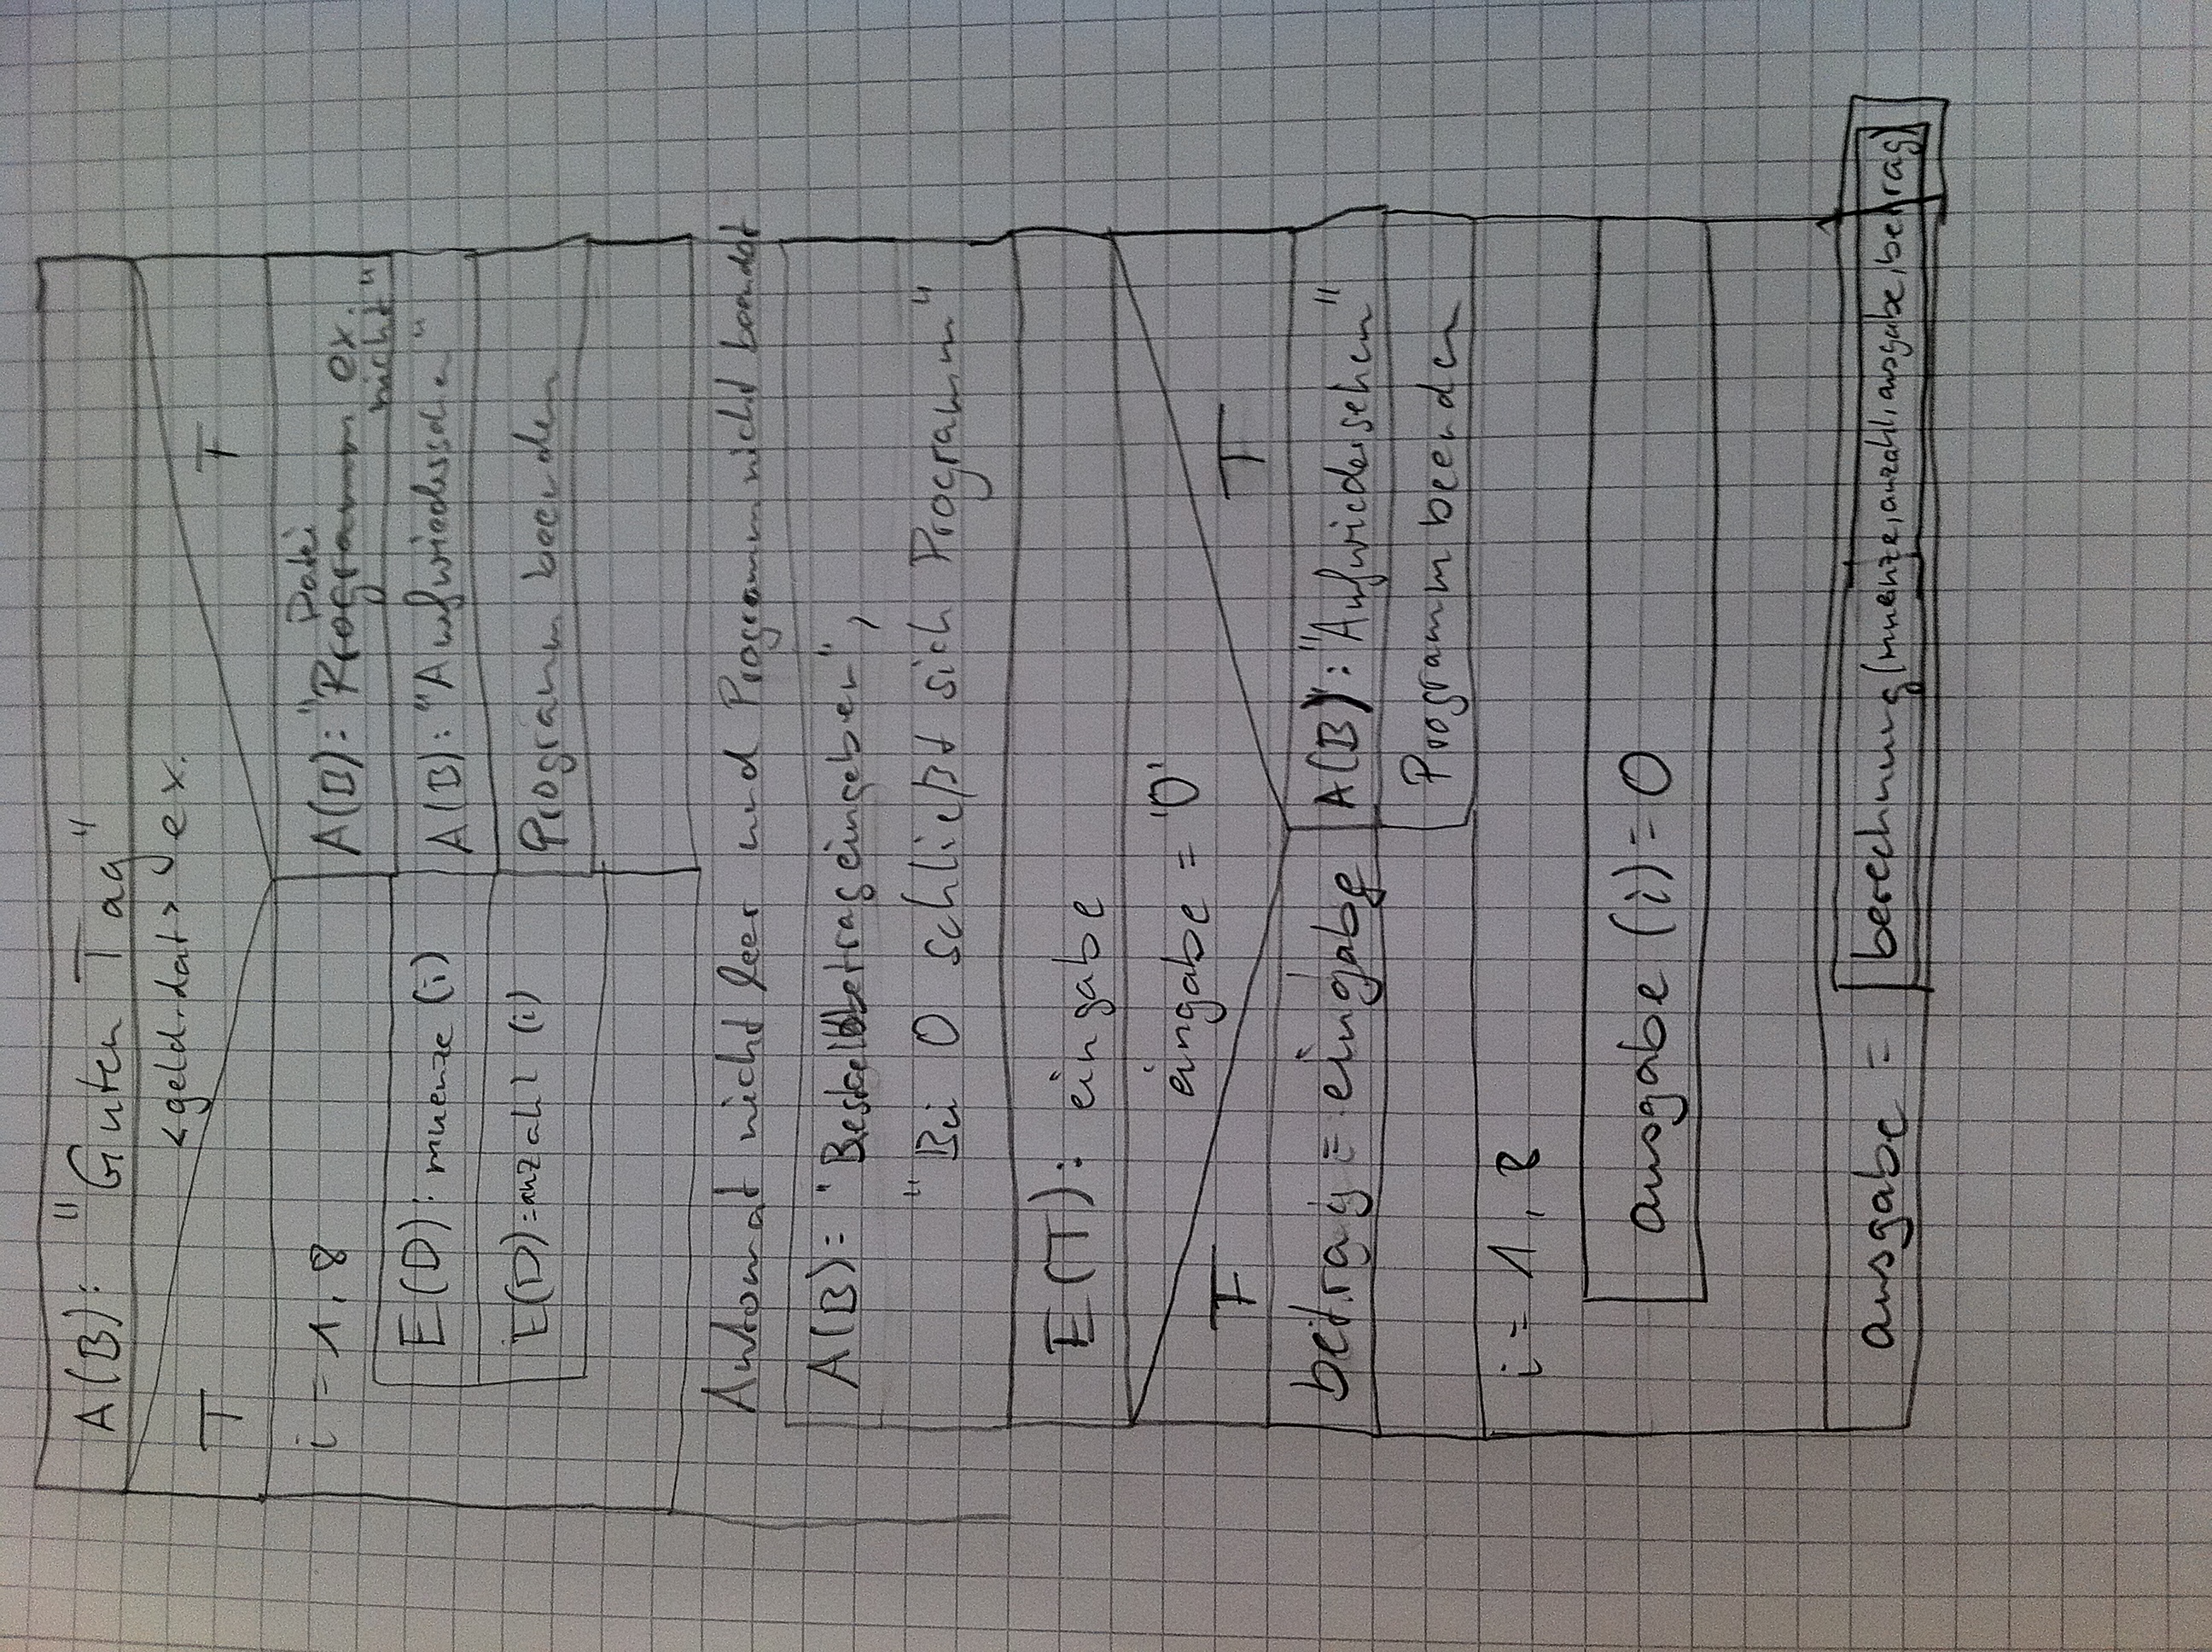 A(B): "Guten Tag"
<geld.dat> ex.
T F
i = 1, 8
E(D): muenze (i)
E(D): anzahl (i)
Datei
A(B): "Programm ex.
nicht"
A(B): "Aufwiedersehen"
Programm beenden
Automat nicht leer und Programm nicht beendet
A(B): "Bestellbetrag eingeben",
"Bei 0 schließt sich Programm"
E(T): eingabe
eingabe = '0'
F T
betrag = eingabe
A(B): "Aufwiedersehen"
Programm beenden
i = 1, 8
ausgabe (i) = 0
ausgabe = berechnung (muenze, anzahl, ausgabe, betrag)